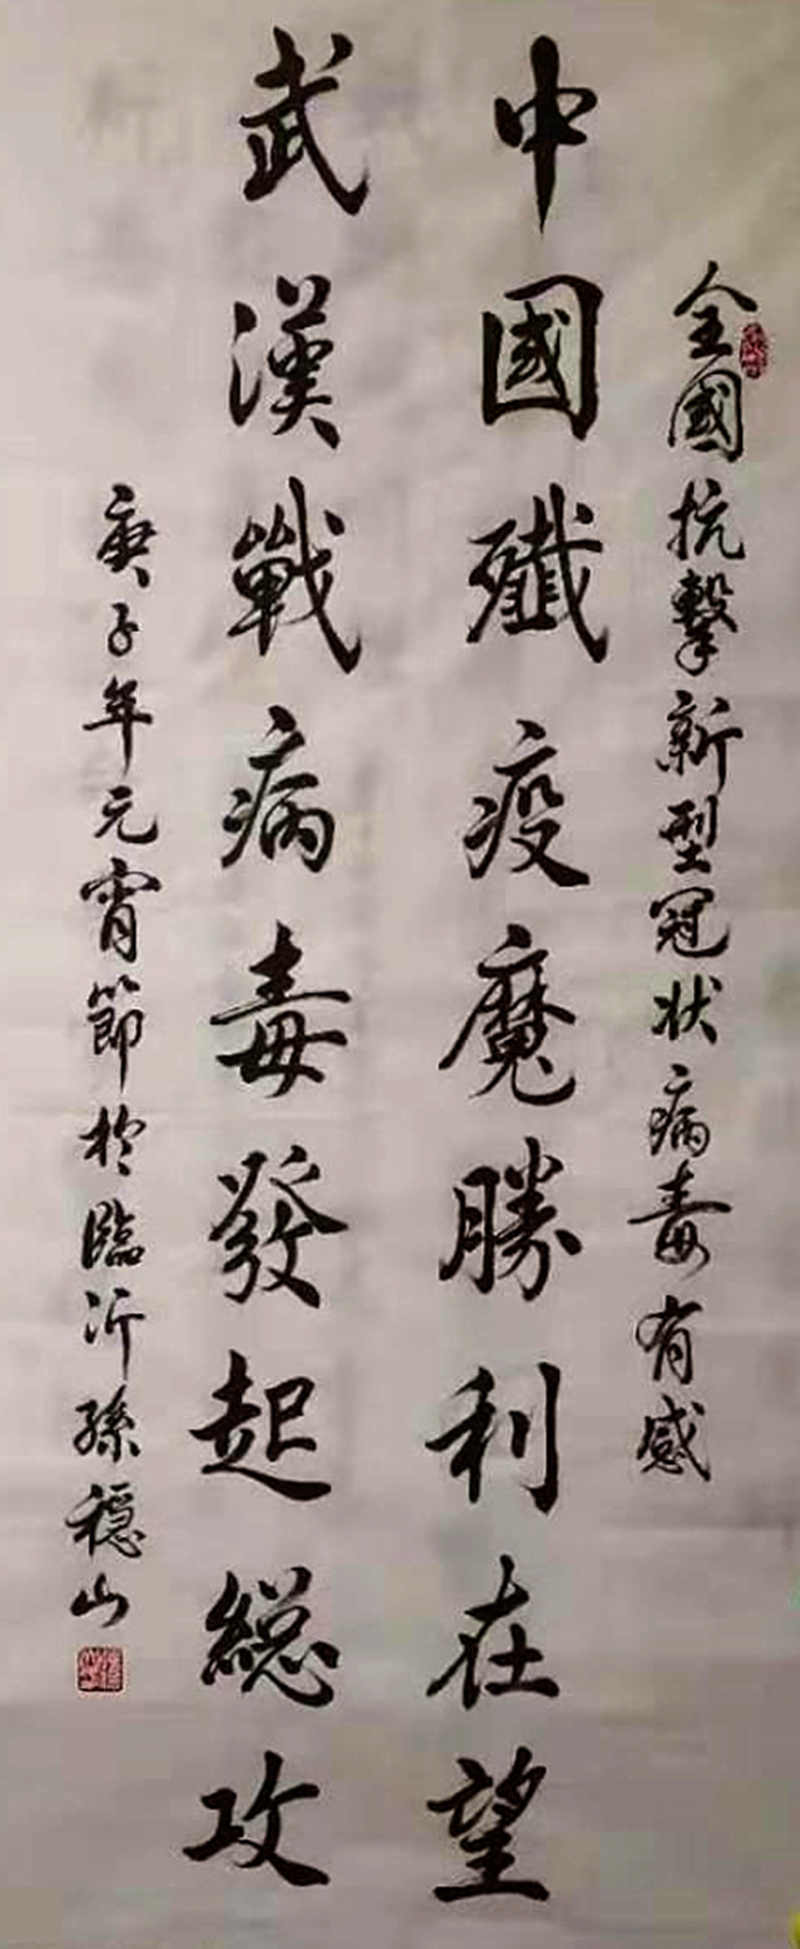 全國抗擊新型冠状病毒有感
中國殲疫魔勝利在望
武漢戰病毒發起総攻
庚子年元宵節於臨沂孫穩山